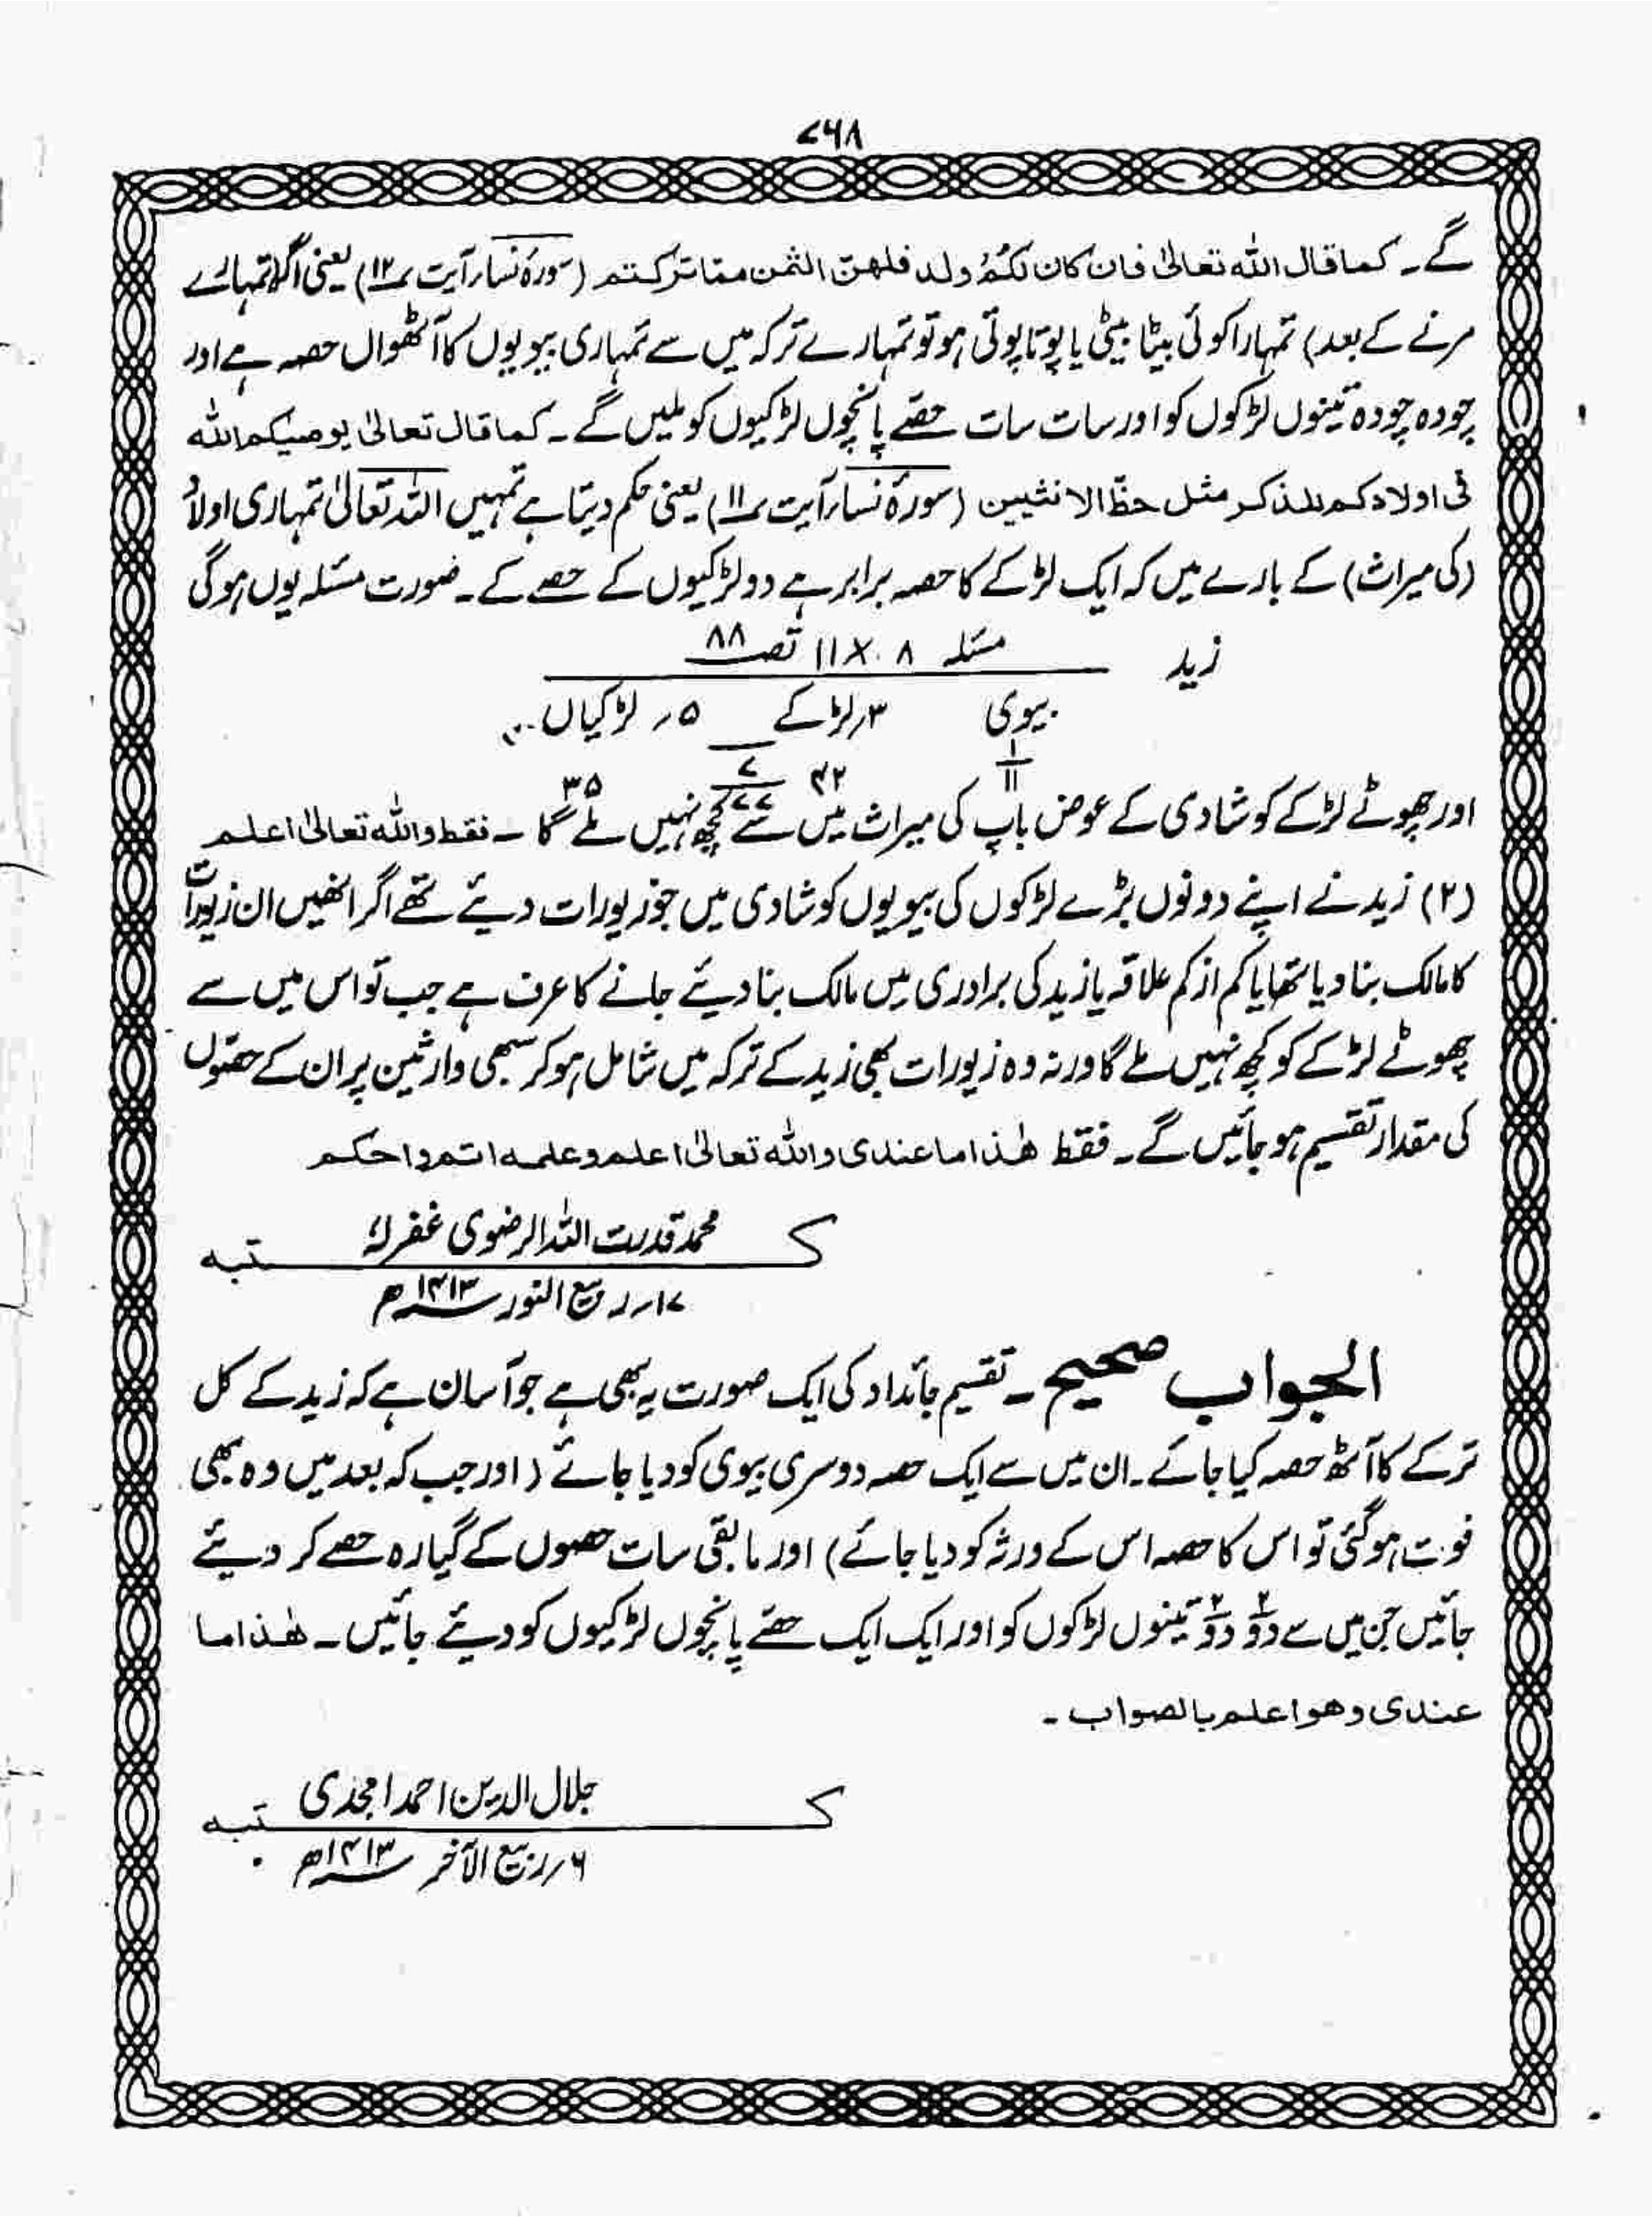 ۷۶۸
گے۔ کما قال اللہ تعالیٰ فان کان لکم ولد فلھن الثمن مما ترکتم (سورۂ نساء آیت ۱۲) یعنی اگر (تمہارے
مرنے کے بعد) تمہارا کوئی بیٹا بیٹی یا پوتا پوتی ہو تو تمہارے ترکہ میں سے تمہاری بیویوں کا آٹھواں حصہ ہے اور
چودہ چودہ تینوں لڑکوں کو اور سات سات حصے پانچوں لڑکیوں کو ملیں گے۔ کما قال تعالیٰ یوصیکم اللہ
فی اولادکم للذکر مثل حظ الانثیین (سورۂ نساء آیت ۱۱) یعنی حکم دیتا ہے تمہیں اللہ تعالیٰ تمہاری اولاد
(کی میراث) کے بارے میں کہ ایک لڑکے کا حصہ برابر ہے دو لڑکیوں کے حصے کے۔ صورت مسئلہ یوں ہوگی
زید مسئلہ ۸ × ۱۱ تصـ ۸۸
بیوی ۳ر لڑکے ۵ر لڑکیاں
۱ ۷
۱۱ ۴۲ ۷۷ ۳۵
اور چھوٹے لڑکے کو شادی کے عوض باپ کی میراث میں سے کچھ نہیں ملے گا۔ فقط واللہ تعالیٰ اعلم
(۲) زید نے اپنے دونوں بڑے لڑکوں کی بیویوں کو شادی میں جو زیورات دیئے تھے اگر انھیں ان زیورات
کا مالک بنا دیا تھا یا کم از کم علاقہ یا زید کی برادری میں مالک بنا دیئے جانے کا عرف ہے جب تو اس میں سے
چھوٹے لڑکے کو کچھ نہیں ملے گا ورنہ وہ زیورات بھی زید کے ترکہ میں شامل ہو کر سبھی وارثین پر ان کے حصوں
کی مقدار تقسیم ہو جائیں گے۔ فقط ھٰذا ما عندی واللہ تعالیٰ اعلم وعلمہ اتم واحکم
کتبہ محمد قدرت اللہ الرضوی غفرلہٗ
۱۷؍ ربیع النور ۱۴۱۳ھ
الجواب صحیح ۔ تقسیم جائداد کی ایک صورت یہ بھی ہے جو آسان ہے کہ زید کے کل
ترکے کا آٹھ حصہ کیا جائے۔ ان میں سے ایک حصہ دوسری بیوی کو دیا جائے (اور جب کہ بعد میں وہ بھی
فوت ہوگئی تو اس کا حصہ اس کے ورثہ کو دیا جائے) اور مابقی سات حصوں کے گیارہ حصے کر دیئے
جائیں جن میں سے دو دو تینوں لڑکوں کو اور ایک ایک حصے پانچوں لڑکیوں کو دیئے جائیں۔ ھٰذا ما
عندی وھو اعلم بالصواب ۔
کتبہ جلال الدین احمد امجدی
۶؍ ربیع الآخر ۱۴۱۳ھ